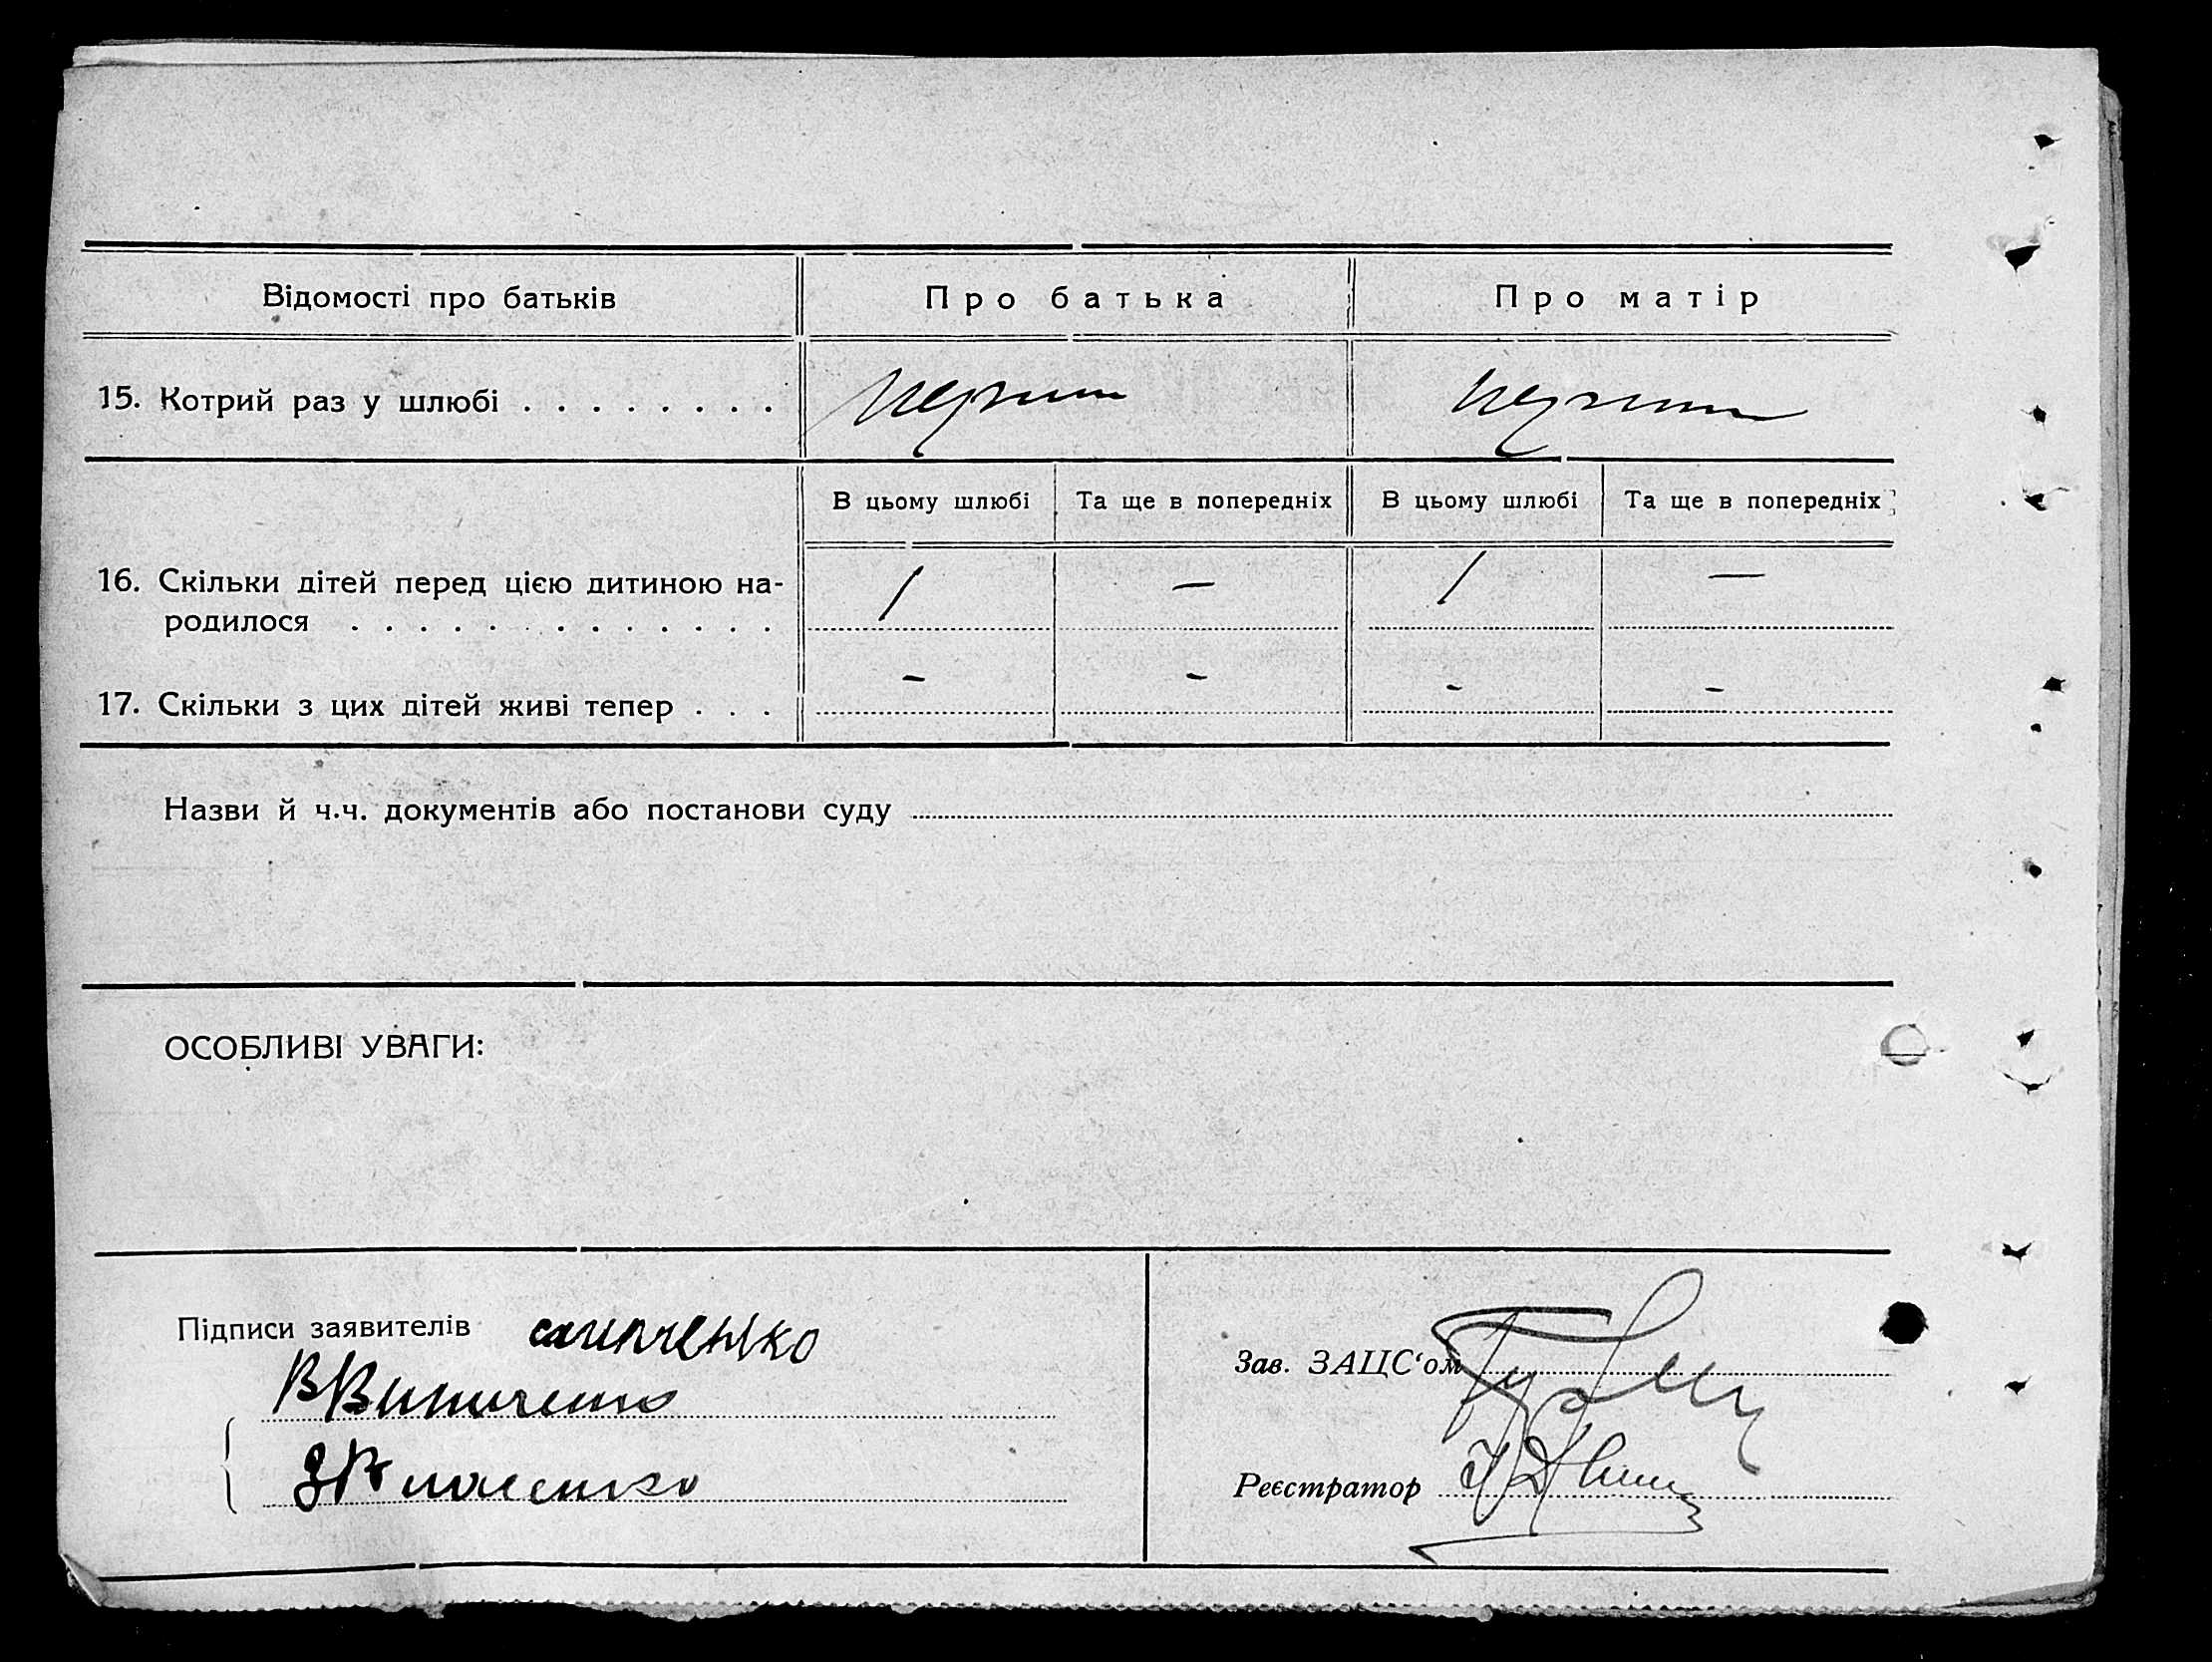 Відомості про батьків Про батька Про матір
15. Котрий раз у шлюбі . . . . . . . . перший перший
В цьому шлюбі Та ще в попередніх В цьому шлюбі Та ще в попередніх
16. Скільки дітей перед цією дитиною на-
родилося . . . . . . . . . . . . . 1 — 1 —
17. Скільки з цих дітей живі тепер . . . - - - -
Назви й ч.ч. документів або постанови суду
ОСОБЛИВІ УВАГИ:
Підписи заявителів
Зав. ЗАЦС‘ом
Реєстратор